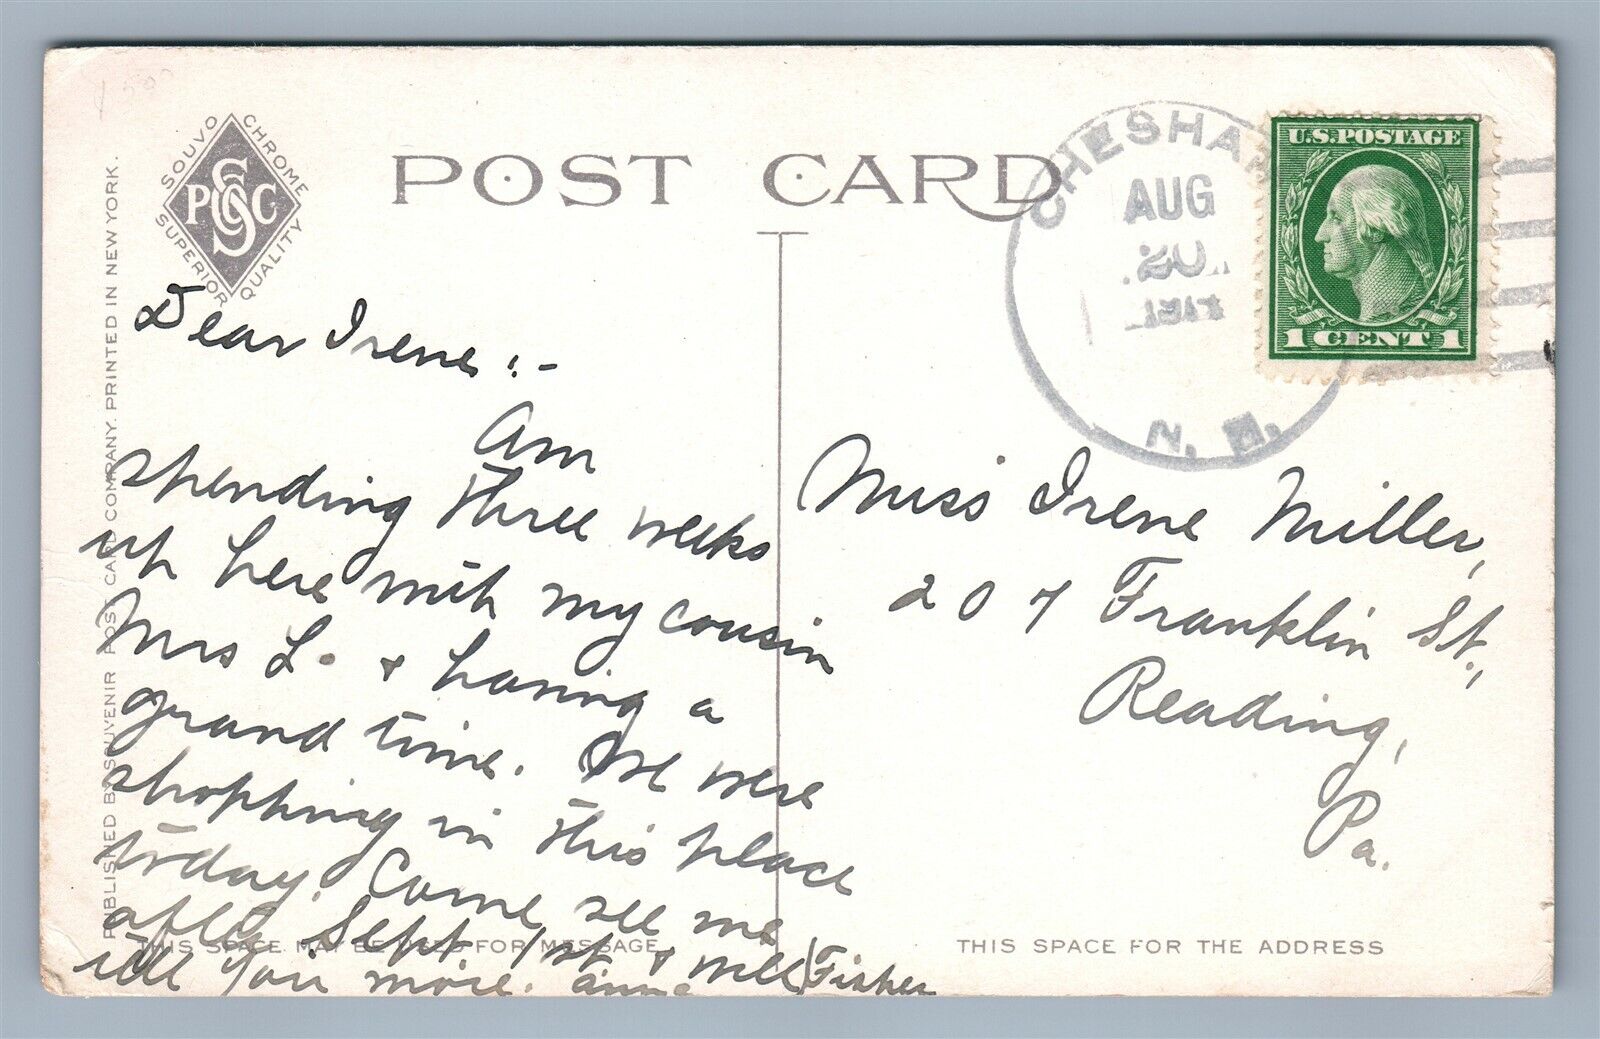 SOUVO CHROME
P S & C C
SUPERIOR QUALITY
POST CARD
CHESHA
AUG
20
N. H.
U.S. POSTAGE
1 CENT 1
PUBLISHED BY SOUVENIR POST CARD COMPANY. PRINTED IN NEW YORK.
Dear Irene:-
Am
spending three weeks
up here with my cousin
Mrs L. & having a
grand time. We were
shopping in this place
today. Come see me
after Sept 1st & will
tell you more. Anna Fisher
THIS SPACE MAY BE USED FOR MESSAGE
Miss Irene Miller,
207 Franklin St.,
Reading,
Pa.
THIS SPACE FOR THE ADDRESS